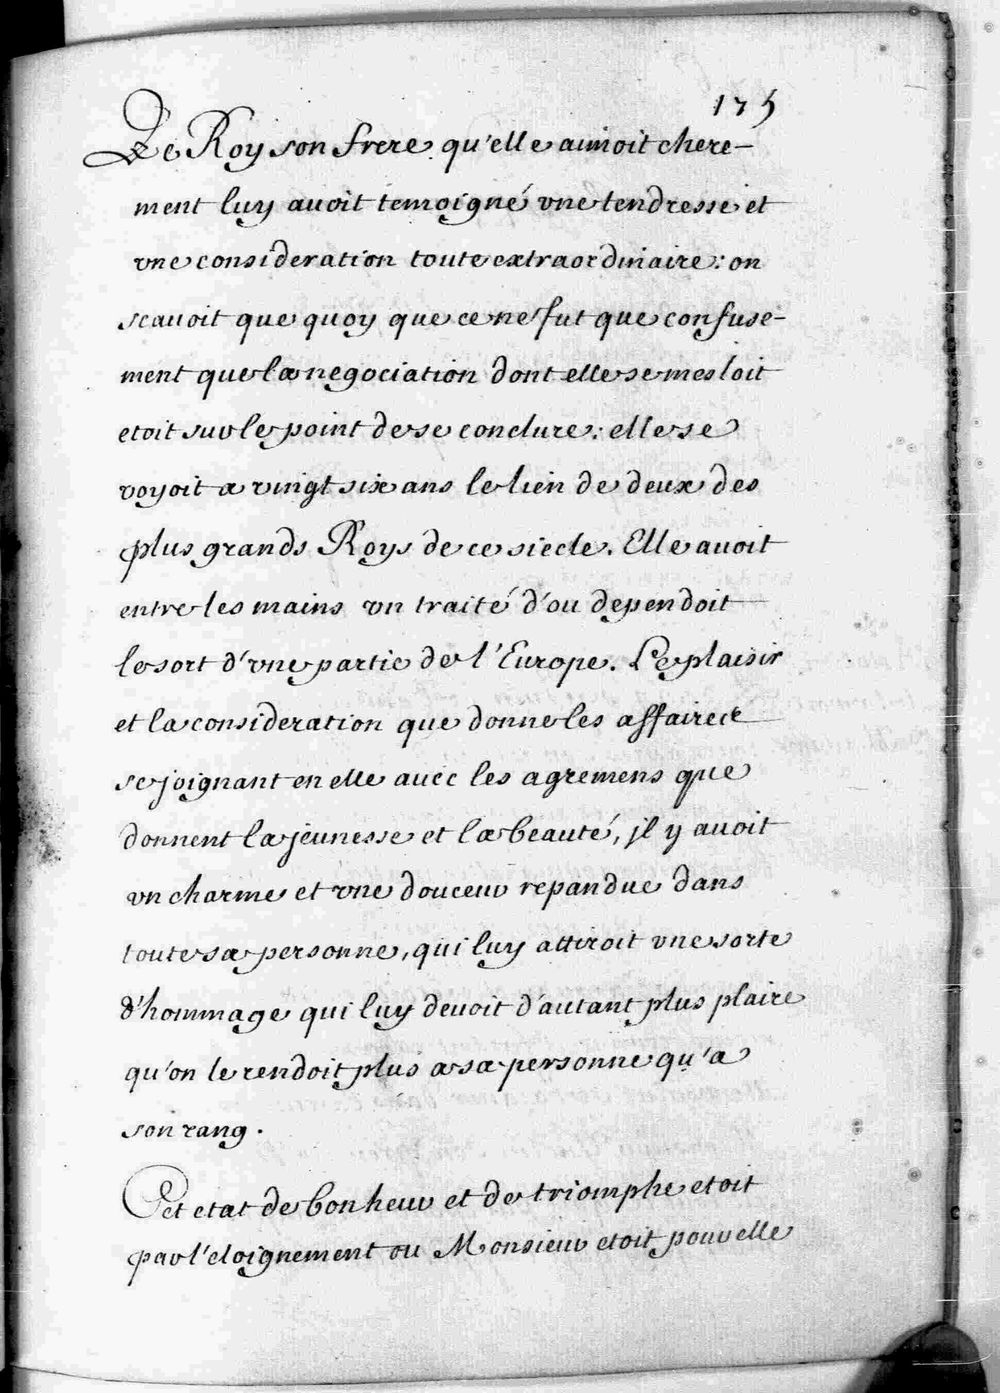 175
Le Roy son frere qu'elle aimoit chere-
ment luy auoit temoigné vne tendresse et
vne consideration toute extraordinaire: on
scauoit que quoy que ce ne fut que confuse-
ment que la negociation dont elle se mesloit
etoit sur le point de se conclure: elle se
voyoit a vingt six ans le lien de deux des
plus grands Roys de ce siecle. Elle auoit
entre les mains vn traité d'ou dependoit
le sort d'vne partie de l'Europe. Le plaisir
et la consideration que donne les affaires
se joignant en elle auec les agremens que
donnent la jeunesse et la beauté, jl y auoit
vn charme et vne douceur repandue dans
toute sa personne, qui luy attiroit vne sorte
d'hommage qui luy deuoit d'autant plus plaire
qu'on le rendoit plus a sa personne qu'a
son rang.
Cet etat de bonheur et de triomphe etoit
par l'eloignement ou Monsieur etoit pour elle